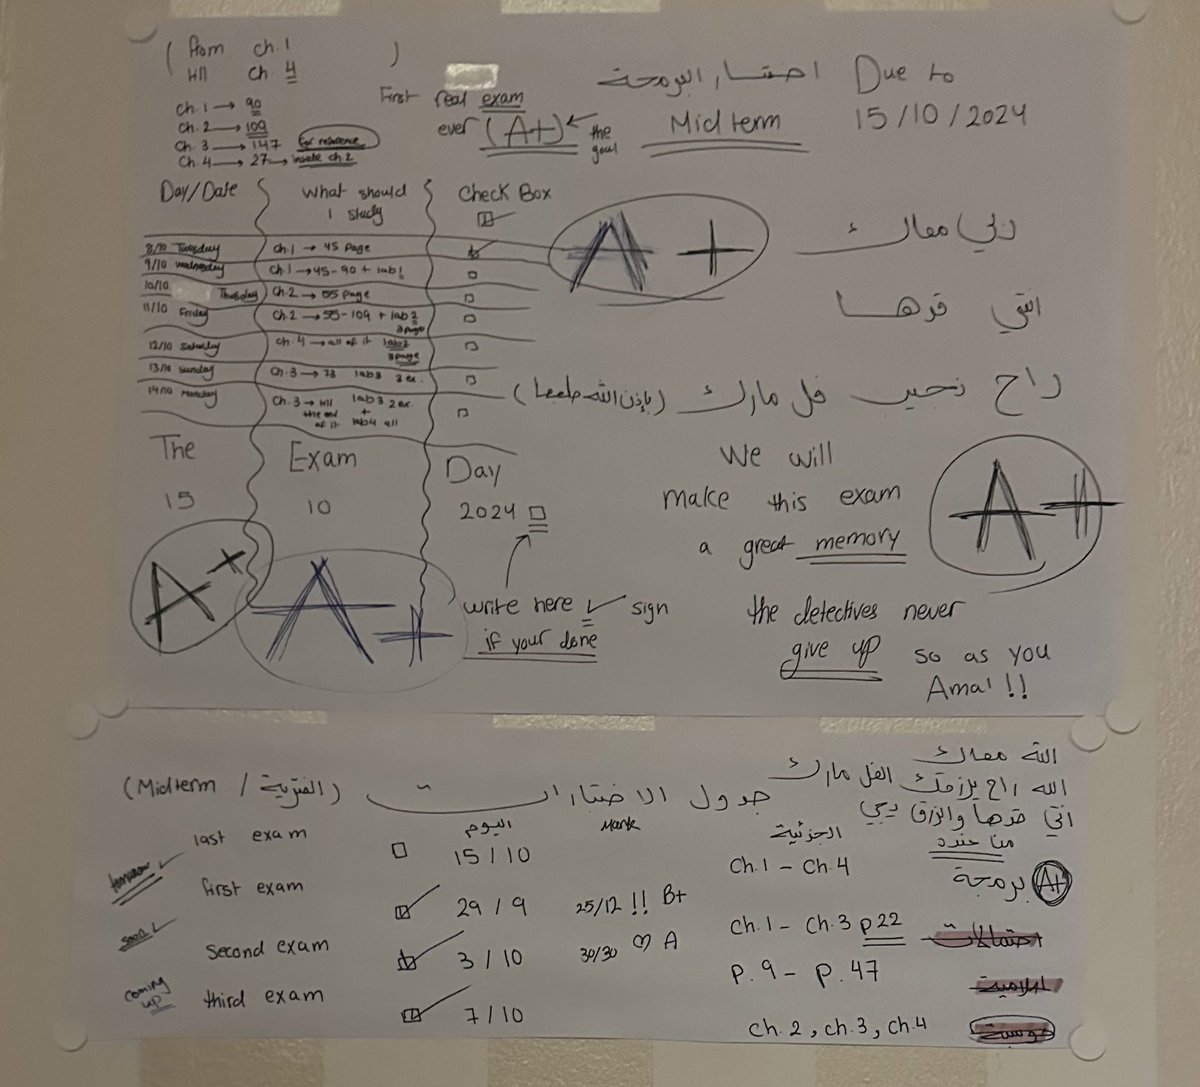 ( from ch.1 )
till ch 4
ch.1 → 90
ch.2 → 109
ch.3 → 147 for reference
ch.4 → 27 → inside ch.2
First real exam
ever (A+) ← the goal
اختبار البرمجة
Midterm
Due to
15/10/2024
Day/Date What should I study Check Box
8/10 Tuesday ch.1 → 45 page
9/10 wednesday ch.1 → 45-90 + lab1
10/10 Thusday ch.2 → 55 page
11/10 Friday ch.2 → 55-109 + lab2 3 page
12/10 Saturday ch.4 → all of it lab2 3 page
13/10 sunday ch.3 → 73 lab3 2 ex.
14/10 Monday ch.3 → till the end of it lab3 2 ex + lab4 all
The Exam Day
15 10 2024
A+
A+
write here ✓ sign
if your done
A+
ربي معاك
انتي قدها
راح نجيب فل مارك (بإذن الله طبعا)
We will
make this exam
a great memory
A+
the detectives never
give up so as you
Amal !!
الله معاك
الله راح يرزقك الفل مارك
انتي قدها والرزق ربي
من عنده
جدول الاختبارات (الفترية / Midterm)
اليوم Mark الجزئية
tomorrow ✓ last exam 15/10 ch.1 - ch.4 برمجة A+
soon first exam 29/9 25/12 !! B+ ch.1 - ch.3 p22 احتمالات
second exam 3/10 30/30 ♡ A p.9 - p.47 اسلامية
coming up third exam 7/10 ch.2, ch.3, ch.4